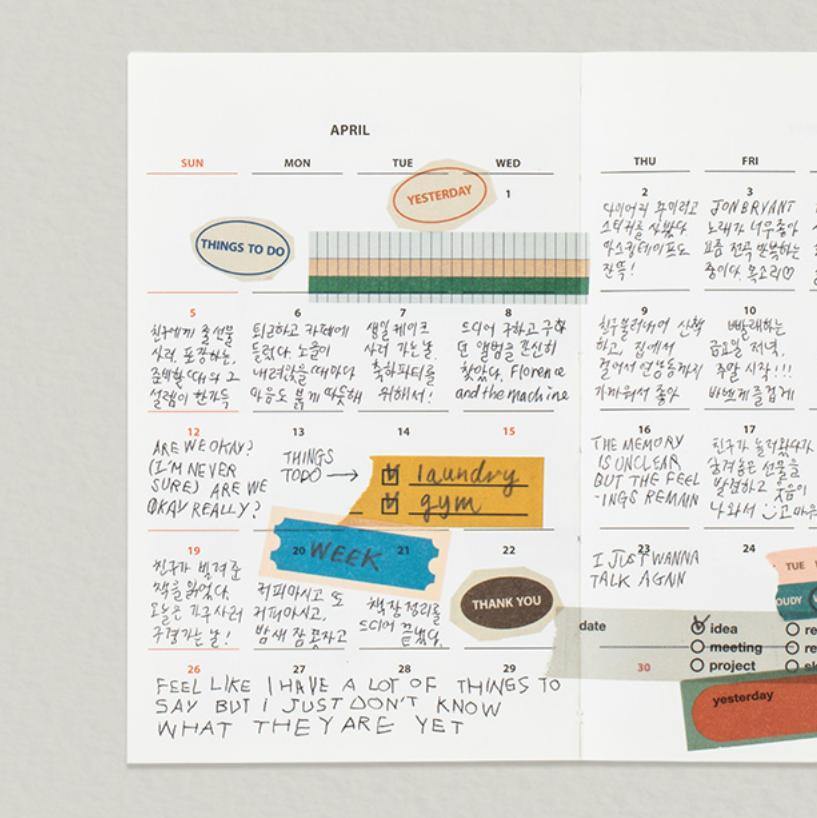 APRIL
SUN MON TUE WED THU FRI
YESTERDAY
1
2
3
다이어리 꾸미려고
스티커를 샀는데
마스킹테이프도
잔뜩!
JON BRYANT
노래가 너무좋아
요즘 전곡 반복하는
중이다. 목소리♡
THINGS TO DO
5
6
7
8
9
10
친구에게 줄 선물
사러. 포장하는,
준비할 때와 그
설렘이 한가득
퇴근하고 카페에
들렀다. 노을이
내려앉을 때마다
마음도 붉게 따뜻해
생일 케이크
사러 가는날.
축하파티를
위해서!
드디어 구하고 구하
던 앨범을 간신히
찾았다. Florence
and the machine
친구 불러내어 산책
하고, 집에서
걸어서 연남동까지
가까워서 좋아
빨래하는
금요일 저녁.
주말 시작!!!
바쁘게 즐겁게
12
13
14
15
16
17
ARE WE OKAY?
(I'M NEVER
SURE) ARE WE
OKAY REALLY?
THINGS
TO DO →
laundry
gym
THE MEMORY
IS UNCLEAR
BUT THE FEEL
-INGS REMAIN
친구가 놀러왔다가
숨겨놓은 선물을
발견하고 웃음이
나와서
19
20
WEEK
21
22
23
24
친구가 빌려준
책을 읽었다.
오늘은 가구 사러
구경가는 날!
커피마시고 또
커피마시고,
밤새 잠 못자고
책장 정리를
드디어 끝냈다.
THANK YOU
I JUST WANNA
TALK AGAIN
TUE
OUDY
date
idea
meeting
project
26
27
28
29
30
FEEL LIKE I HAVE A LOT OF THINGS TO
SAY BUT I JUST DON'T KNOW
WHAT THEY ARE YET
yesterday